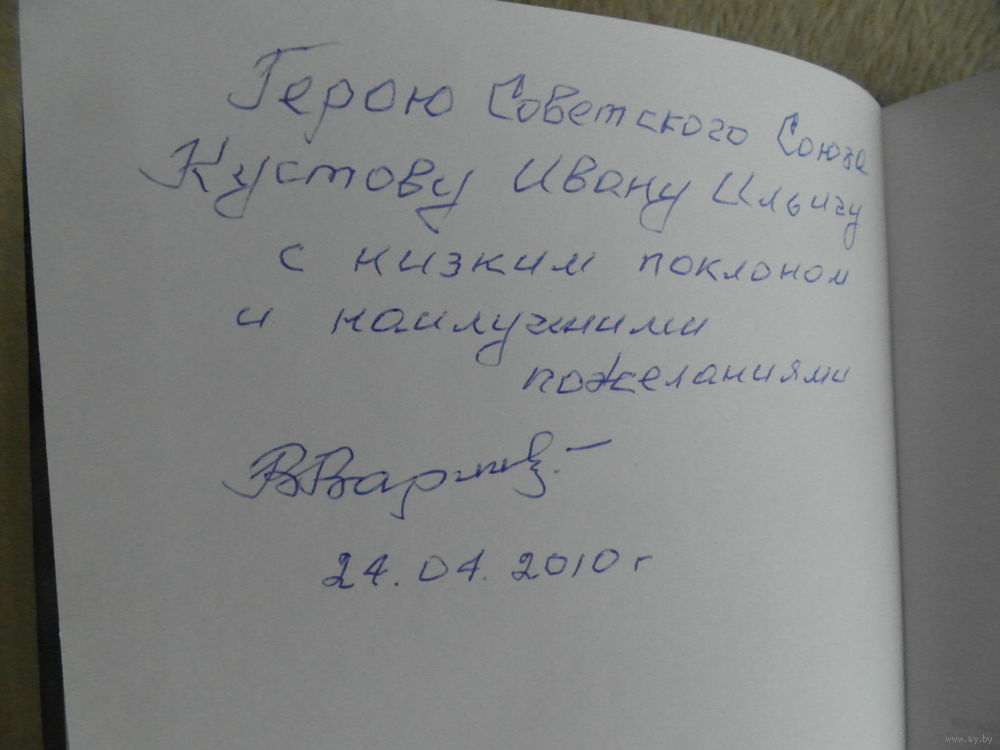 Герою Советского Союза
Кустову Ивану Ильичу
с низким поклоном
и наилучшими
пожеланиями
24.04.2010 г
www.ay.by